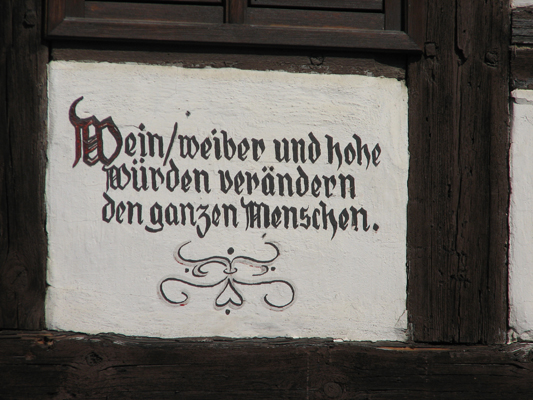 Wein/weiber und hohe
würden verändern
den ganzen Menschen.